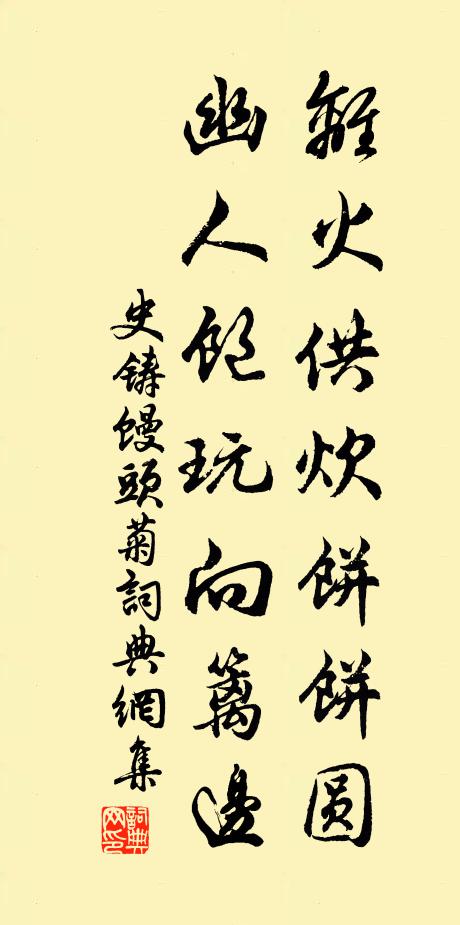 難火供炊餅餅圓
幽人飽玩向篱邊
史鑄饅頭菊詞典網集
詞典网印